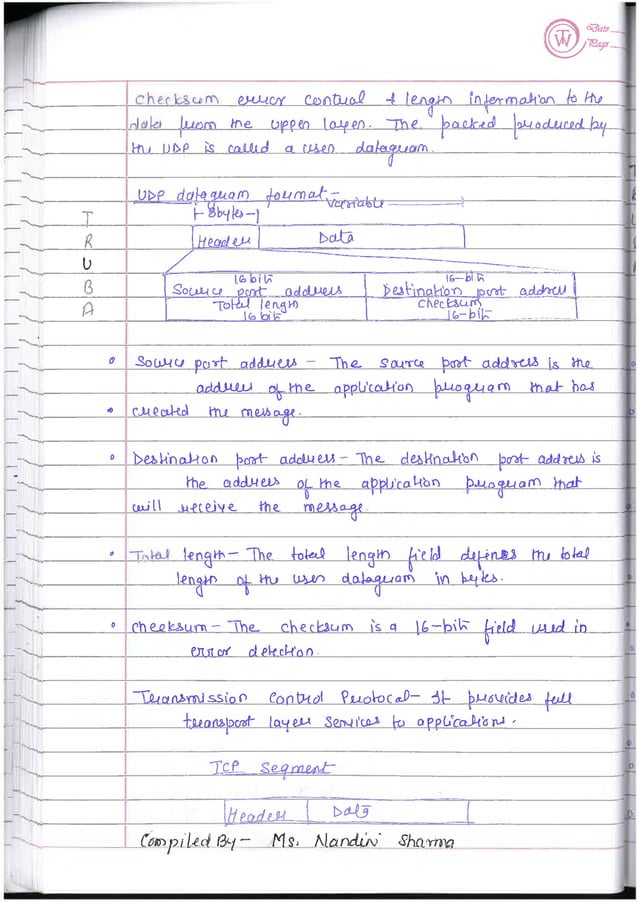 Date
Page
checksum error control & length information to the
data from the upper layer. The packed produced by
the UDP is called a user datagram.
UDP datagram format -
variable
8bytes
Header Data
16 bit 16-bit
Source port address Destination port address
Total length checksum
16 bit 16-bit
T
R
U
B
A
Source port address - The source port address is the
address of the application program that has
created the message.
Destination port address - The destination port address is
the address of the application program that
will receive the message
Total length - The total length field defines the total
length of the user datagram in bytes.
checksum - The checksum is a 16-bit field used in
error detection.
Transmission Control Protocal - It provides full
transport layer services to applications.
TCP Segment
Header Data
Compiled By - Ms. Nandini Sharma